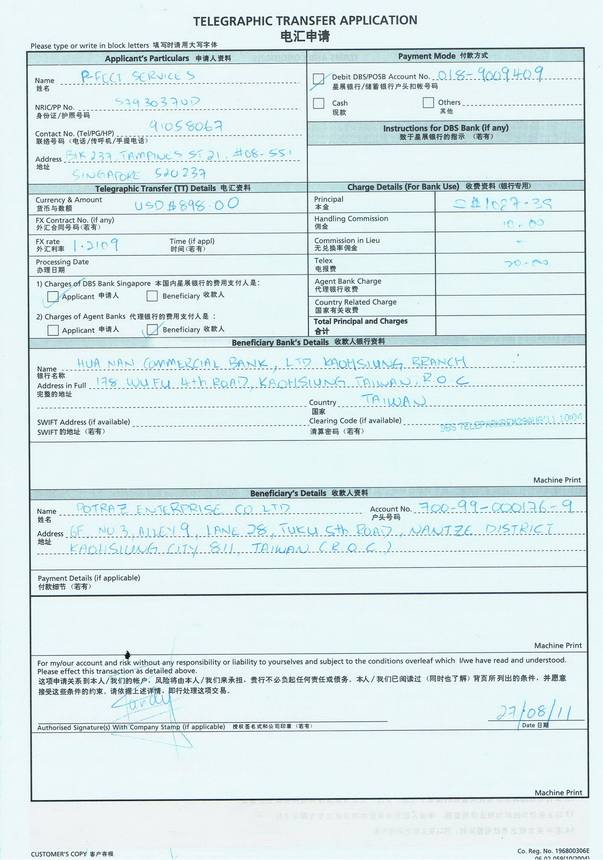 TELEGRAPHIC TRANSFER APPLICATION
电汇申请
Please type or write in block letters 填写时请用大写字体
Applicant's Particulars 申请人资料
Name P-FECT SERVICES
姓名
NRIC/PP No. S7930370D
身份证/护照号码
Contact No. (Tel/PG/HP) 91058067
联络号码 (电话/传呼机/手提电话)
Address BLK 237 TAMPINES ST 21, #08-551
地址 SINGAPORE 520237
Payment Mode 付款方式
Debit DBS/POSB Account No. 018-9009409
星展银行/储蓄银行户头扣帐号码
Cash Others
现款 其他
Instructions for DBS Bank (if any)
致于星展银行的指示 (若有)
Telegraphic Transfer (TT) Details 电汇资料
Currency & Amount USD$898.00
货币与数额
FX Contract No. (if any)
外汇合同号码(若有)
FX rate 1.2109 Time (if appl)
外汇利率 时间(若有)
Processing Date
办理日期
1) Charges of DBS Bank Singapore 本国内星展银行的费用支付人是:
Applicant 申请人 Beneficiary 收款人
2) Charges of Agent Banks 代理银行的费用支付人是:
Applicant 申请人 Beneficiary 收款人
Charge Details (For Bank Use) 收费资料 (银行专用)
Principal S$1087-39
本金
Handling Commission 10.00
佣金
Commission in Lieu -
无兑换率佣金
Telex 20-00
电报费
Agent Bank Charge
代理银行收费
Country Related Charge
国家有关收费
Total Principal and Charges
合计
Beneficiary Bank's Details 收款人银行资料
Name HUA NAN COMMERCIAL BANK, LTD KAOHSIUNG BRANCH
银行名称
Address in Full 178 WUFU 4th ROAD, KAOHSIUNG TAIWAN, R.O.C
完整的地址
Country TAIWAN
国家
SWIFT Address (if available) Clearing Code (if available)
SWIFT的地址 (若有) 清算密码 (若有)
Machine Print
Beneficiary's Details 收款人资料
Name POTRAZ ENTERPRISE CO. LTD Account No. 700-99-000176-9
姓名 户头号码
Address 6F NO 3, ALLEY 9, LANE 28, TUKU 5th ROAD, NANTZE DISTRICT
地址 KAOHSIUNG CITY 811, TAIWAN (R.O.C.)
Payment Details (if applicable)
付款细节 (若有)
Machine Print
For my/our account and risk without any responsibility or liability to yourselves and subject to the conditions overleaf which I/we have read and understood.
Please effect this transaction as detailed above.
这项申请关系到本人/我们的帐户,风险将由本人/我们来承担,贵行不必负起任何责任或债务,本人/我们已阅读过 (同时也了解) 背页所列出的条件,并愿意
接受这些条件的约束,请依据上述详情,即行处理这项交易.
27/08/11
Authorised Signature(s) With Company Stamp (if applicable) 授权签名式和公司印章 (若有) Date 日期
Machine Print
CUSTOMER'S COPY 客户存根
Co. Reg. No. 196800306E